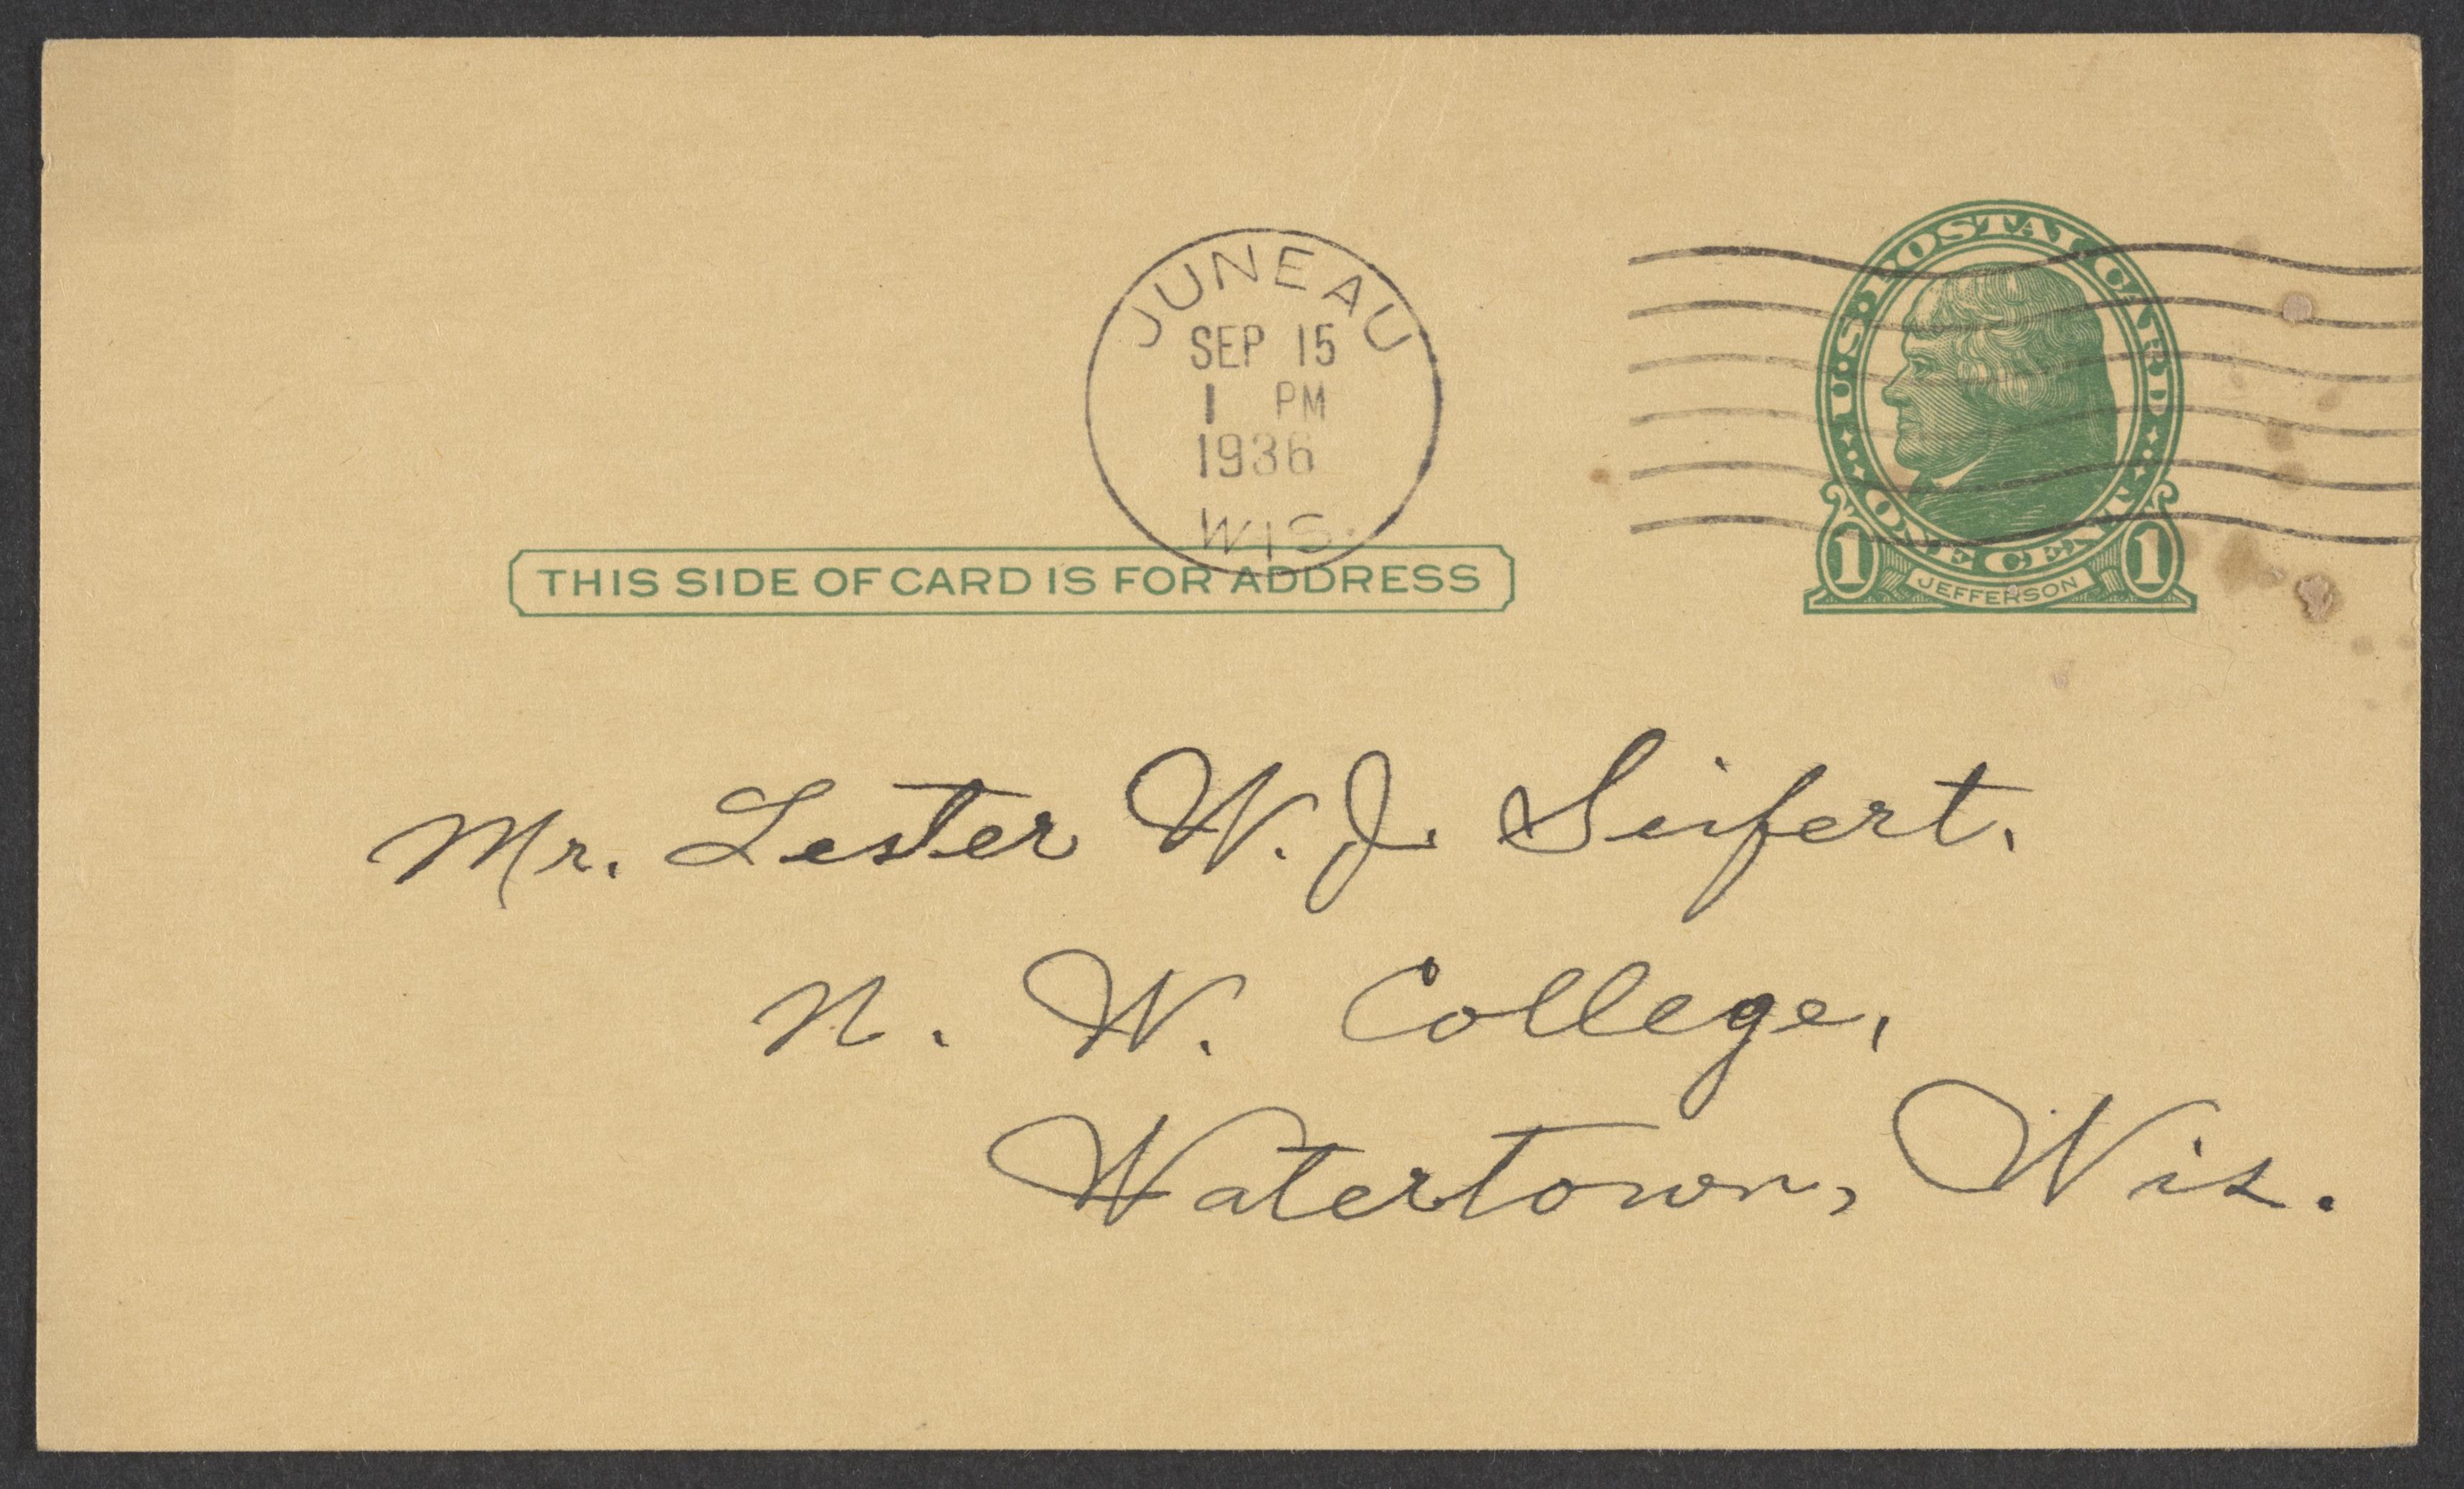 JUNEAU
SEP 15
1 PM
1936
WIS.
U.S. POSTAL CARD
ONE CENT
1 JEFFERSON 1
THIS SIDE OF CARD IS FOR ADDRESS
Mr. Lester W. J. Seifert,
N. W. College,
Watertown, Wis.